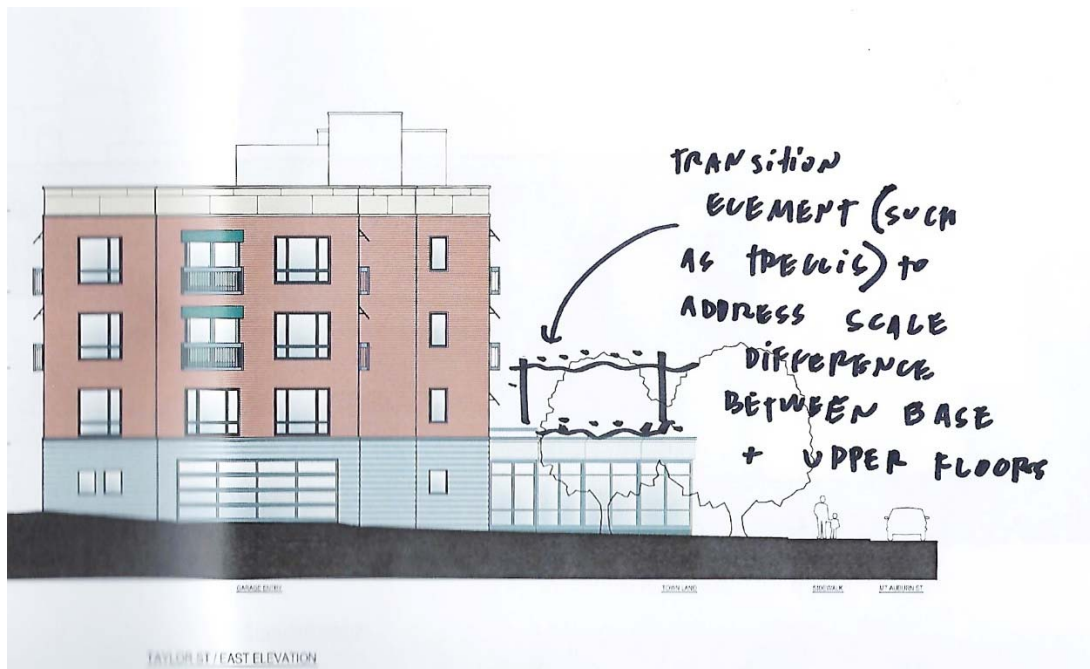 TRANSITION
ELEMENT (SUCH
AS TRELLIS) to
ADDRESS SCALE
DIFFERENCE
BETWEEN BASE
+ UPPER FLOORS
GARAGE ENTRY
TOWN LAND
SIDEWALK
MT AUBURN ST
TAYLOR ST / EAST ELEVATION